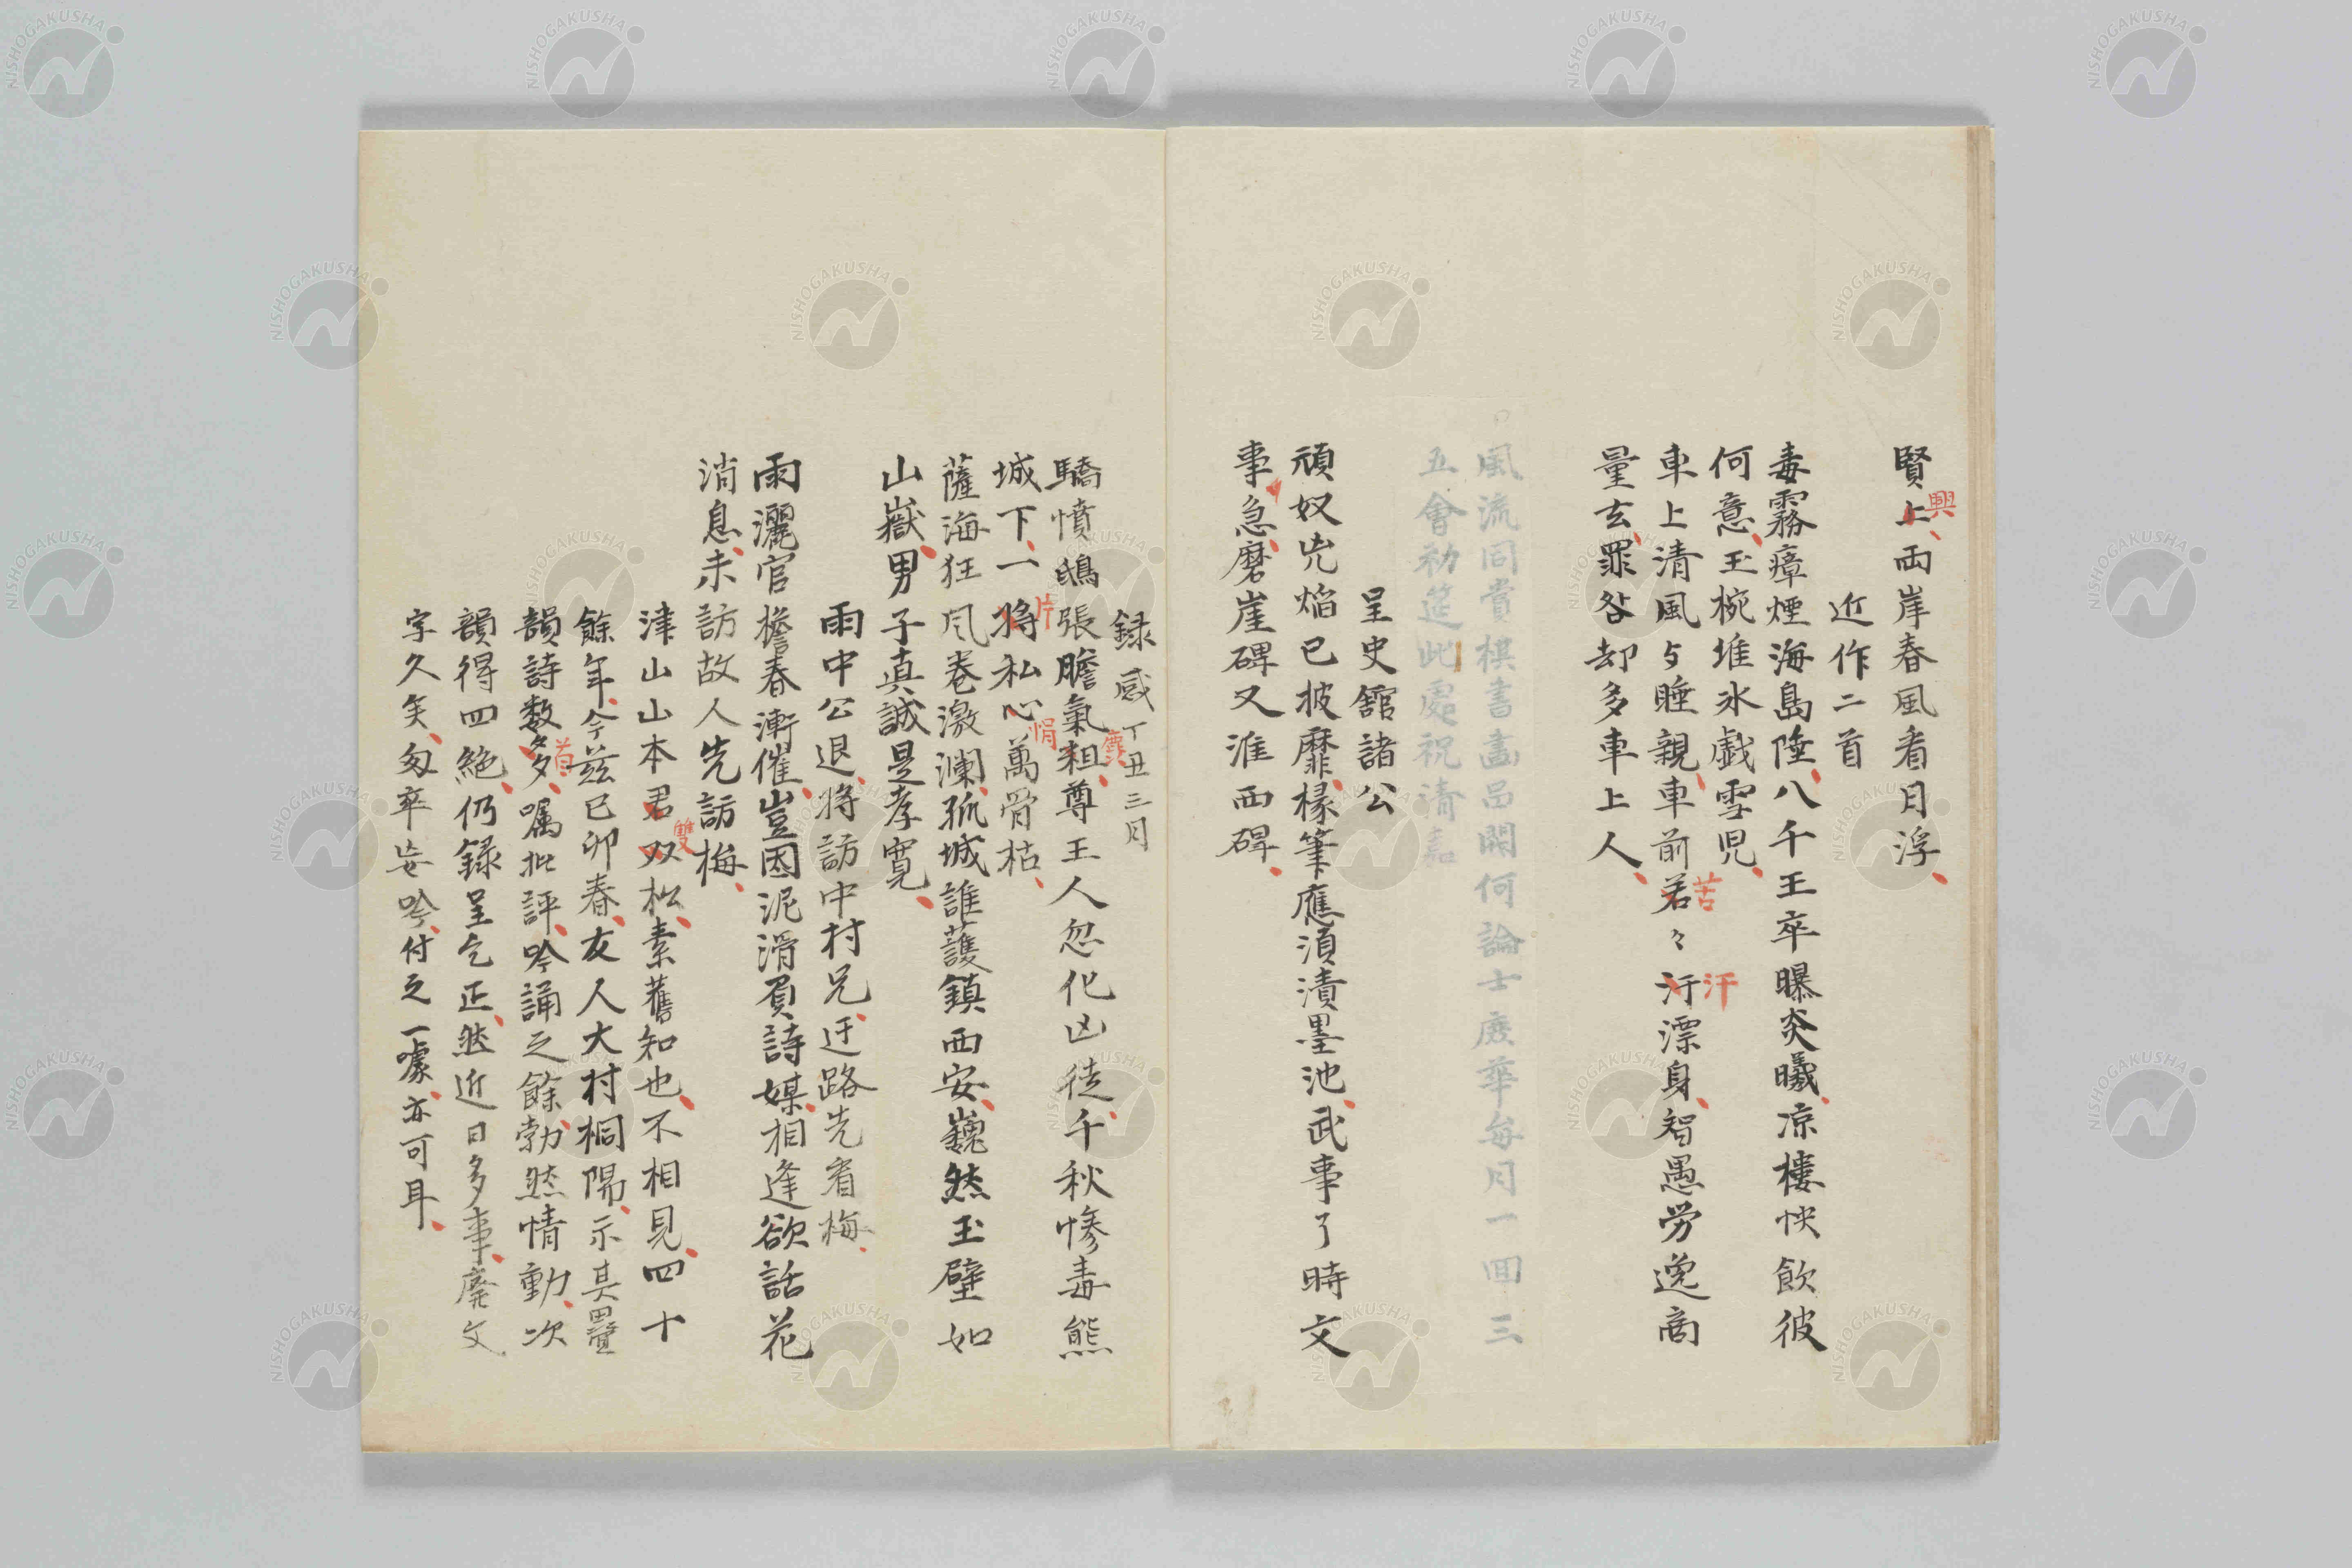 賢上両岸春風看月浮
興
近作二首
毒霧瘴煙海島陲八千王卒曝炎曦凉樓怏飲彼
何意玉椀堆氷戯雪児
車上清風与睡親車前若々汙漂身智愚労逸商
苦
汗
量玄罪咎却多車上人
風流同賞棋書畵品関何論士庶華毎月一回三
五會初筵此處祝清嘉
呈史舘諸公
頑奴兇焔已披靡椽筆應須漬墨池武事了時文
事急磨崖碑又淮西碑
録感丁丑三月
驕憤鴟張膽氣粗尊王人忽化凶徒千秋惨毒熊
麤
城下一将私心萬骨枯
片
悁
薩海狂風巻激瀾孤城誰護鎮西安巍然玉壁如
山嶽男子真誠是孝寛
雨中公退将訪中村兄迂路先看梅
雨灑官檐春漸催豈因泥滑負詩媒相逢欲話花
消息未訪故人先訪梅
津山山本君双松素舊知也不相見四十
雙
餘年今茲已卯春友人大村桐陽示其疊
韻詩数多囑批評吟誦之餘勃然情動次
首
韻得四絶仍録呈乞正然近日多事廃文
字久矣匆卒妄吟付之一噱亦可耳
NISHOGAKUSHA